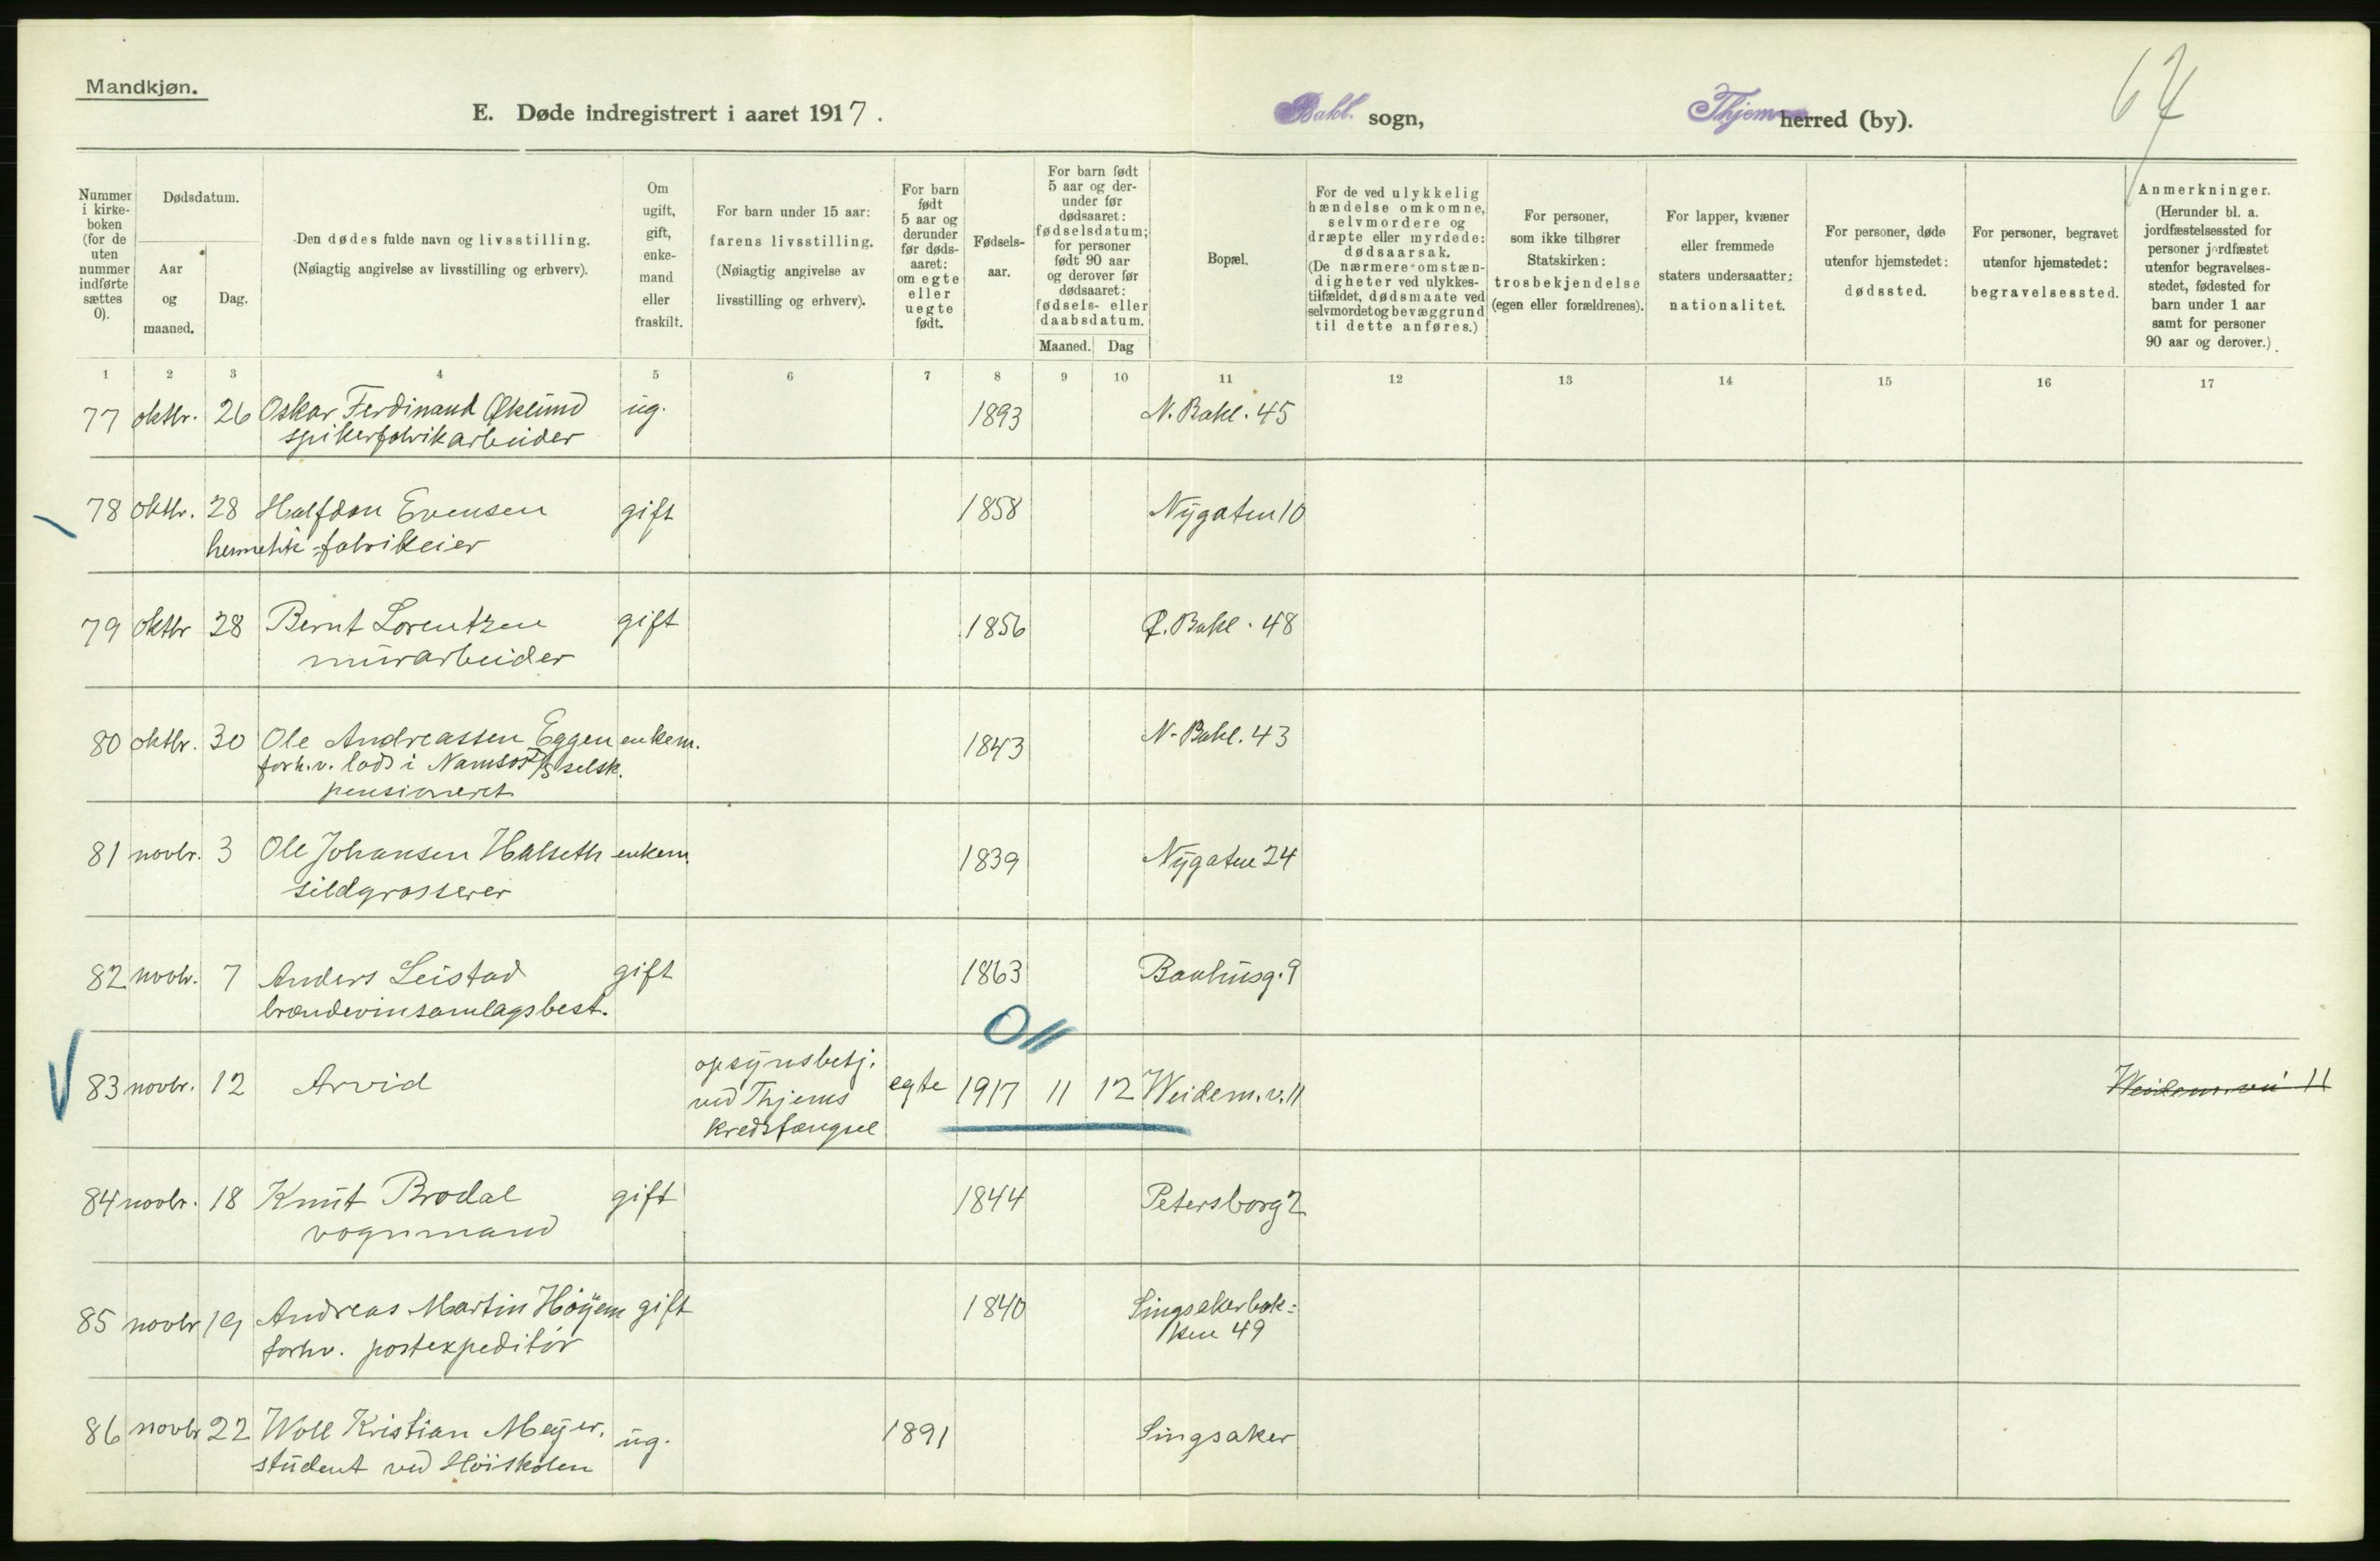 Mandkjøn.
E. Døde indregistrert i aaret 1917.
Bakl. sogn,
Thjems herred (by).
67
Nummer i kirke-boken (for de uten nummer indførte sættes 0).
Dødsdatum.
Aar og maaned.
Dag.
Den dødes fulde navn og livsstilling.
(Nøiagtig angivelse av livsstilling og erhverv).
Om ugift, gift, enke-mand eller fraskilt.
For barn under 15 aar: farens livsstilling. (Nøiagtig angivelse av livsstilling og erhverv).
For barn født 5 aar og derunder før døds-aaret: om egte eller uegte født.
Fødsels-aar.
For barn født 5 aar og der-under før dødsaaret: fødselsdatum; for personer født 90 aar og derover før dødsaaret: fødsels- eller daabsdatum.
Maaned. Dag
Bopæl.
For de ved ulykkelig hændelse omkomne, selvmordere og dræpte eller myrdede: dødsaarsak. (De nærmere omstæn-digheter ved ulykkes-tilfældet, dødsmaate ved selvmordet og bevæggrund til dette anføres.)
For personer, som ikke tilhører Statskirken: trosbekjendelse (egen eller forældrenes).
For lapper, kvæner eller fremmede staters undersaatter: nationalitet.
For personer, døde utenfor hjemstedet: dødssted.
For personer, begravet utenfor hjemstedet: begravelsessted.
Anmerkninger. (Herunder bl. a. jordfæstelsessted for personer jordfæstet utenfor begravelses-stedet, fødested for barn under 1 aar samt for personer 90 aar og derover.)
1 2 3 4 5 6 7 8 9 10 11 12 13 14 15 16 17
77 oktbr. 26 Oskar Ferdinand Øklund ug. 1893 N. Bakl. 45
spikerfabrikarbeider
78 oktbr. 28 Halfdan Evensen gift 1858 Nygaten 10
hermetik-fabrikeier
79 oktbr 28 Bernt Lorentzen gift 1856 Ø. Bakl. 48
murarbeider
80 oktbr. 30 Ole Andreassen Eggen enkem. 1843 N. Bakl. 43
forh.v. lods i Namsos D/S selsk.
pensioneret
81 novbr. 3 Ole Johansen Halseth enkem. 1839 Nygaten 24
sildgrosserer
82 novbr. 7 Anders Leistad gift 1863 Bakhusg. 9
brændevinsamlagsbest.
0 //
83 novbr. 12 Arvid opsynsbetj. ved Thjems kredsfængsel egte 1917 11 12 Weidem. v. 11 Weidem. vei 11
84 novbr. 18 Knut Brodal gift 1844 Petersborg 2
vognmand
85 novbr 19 Andreas Martin Höyem gift 1840 Singsakerbak=
forhv. postexpeditör ken 49
86 novbr 22 Woll Kristian Meyer. ug. 1891 Singsaker
student ved Höiskolen